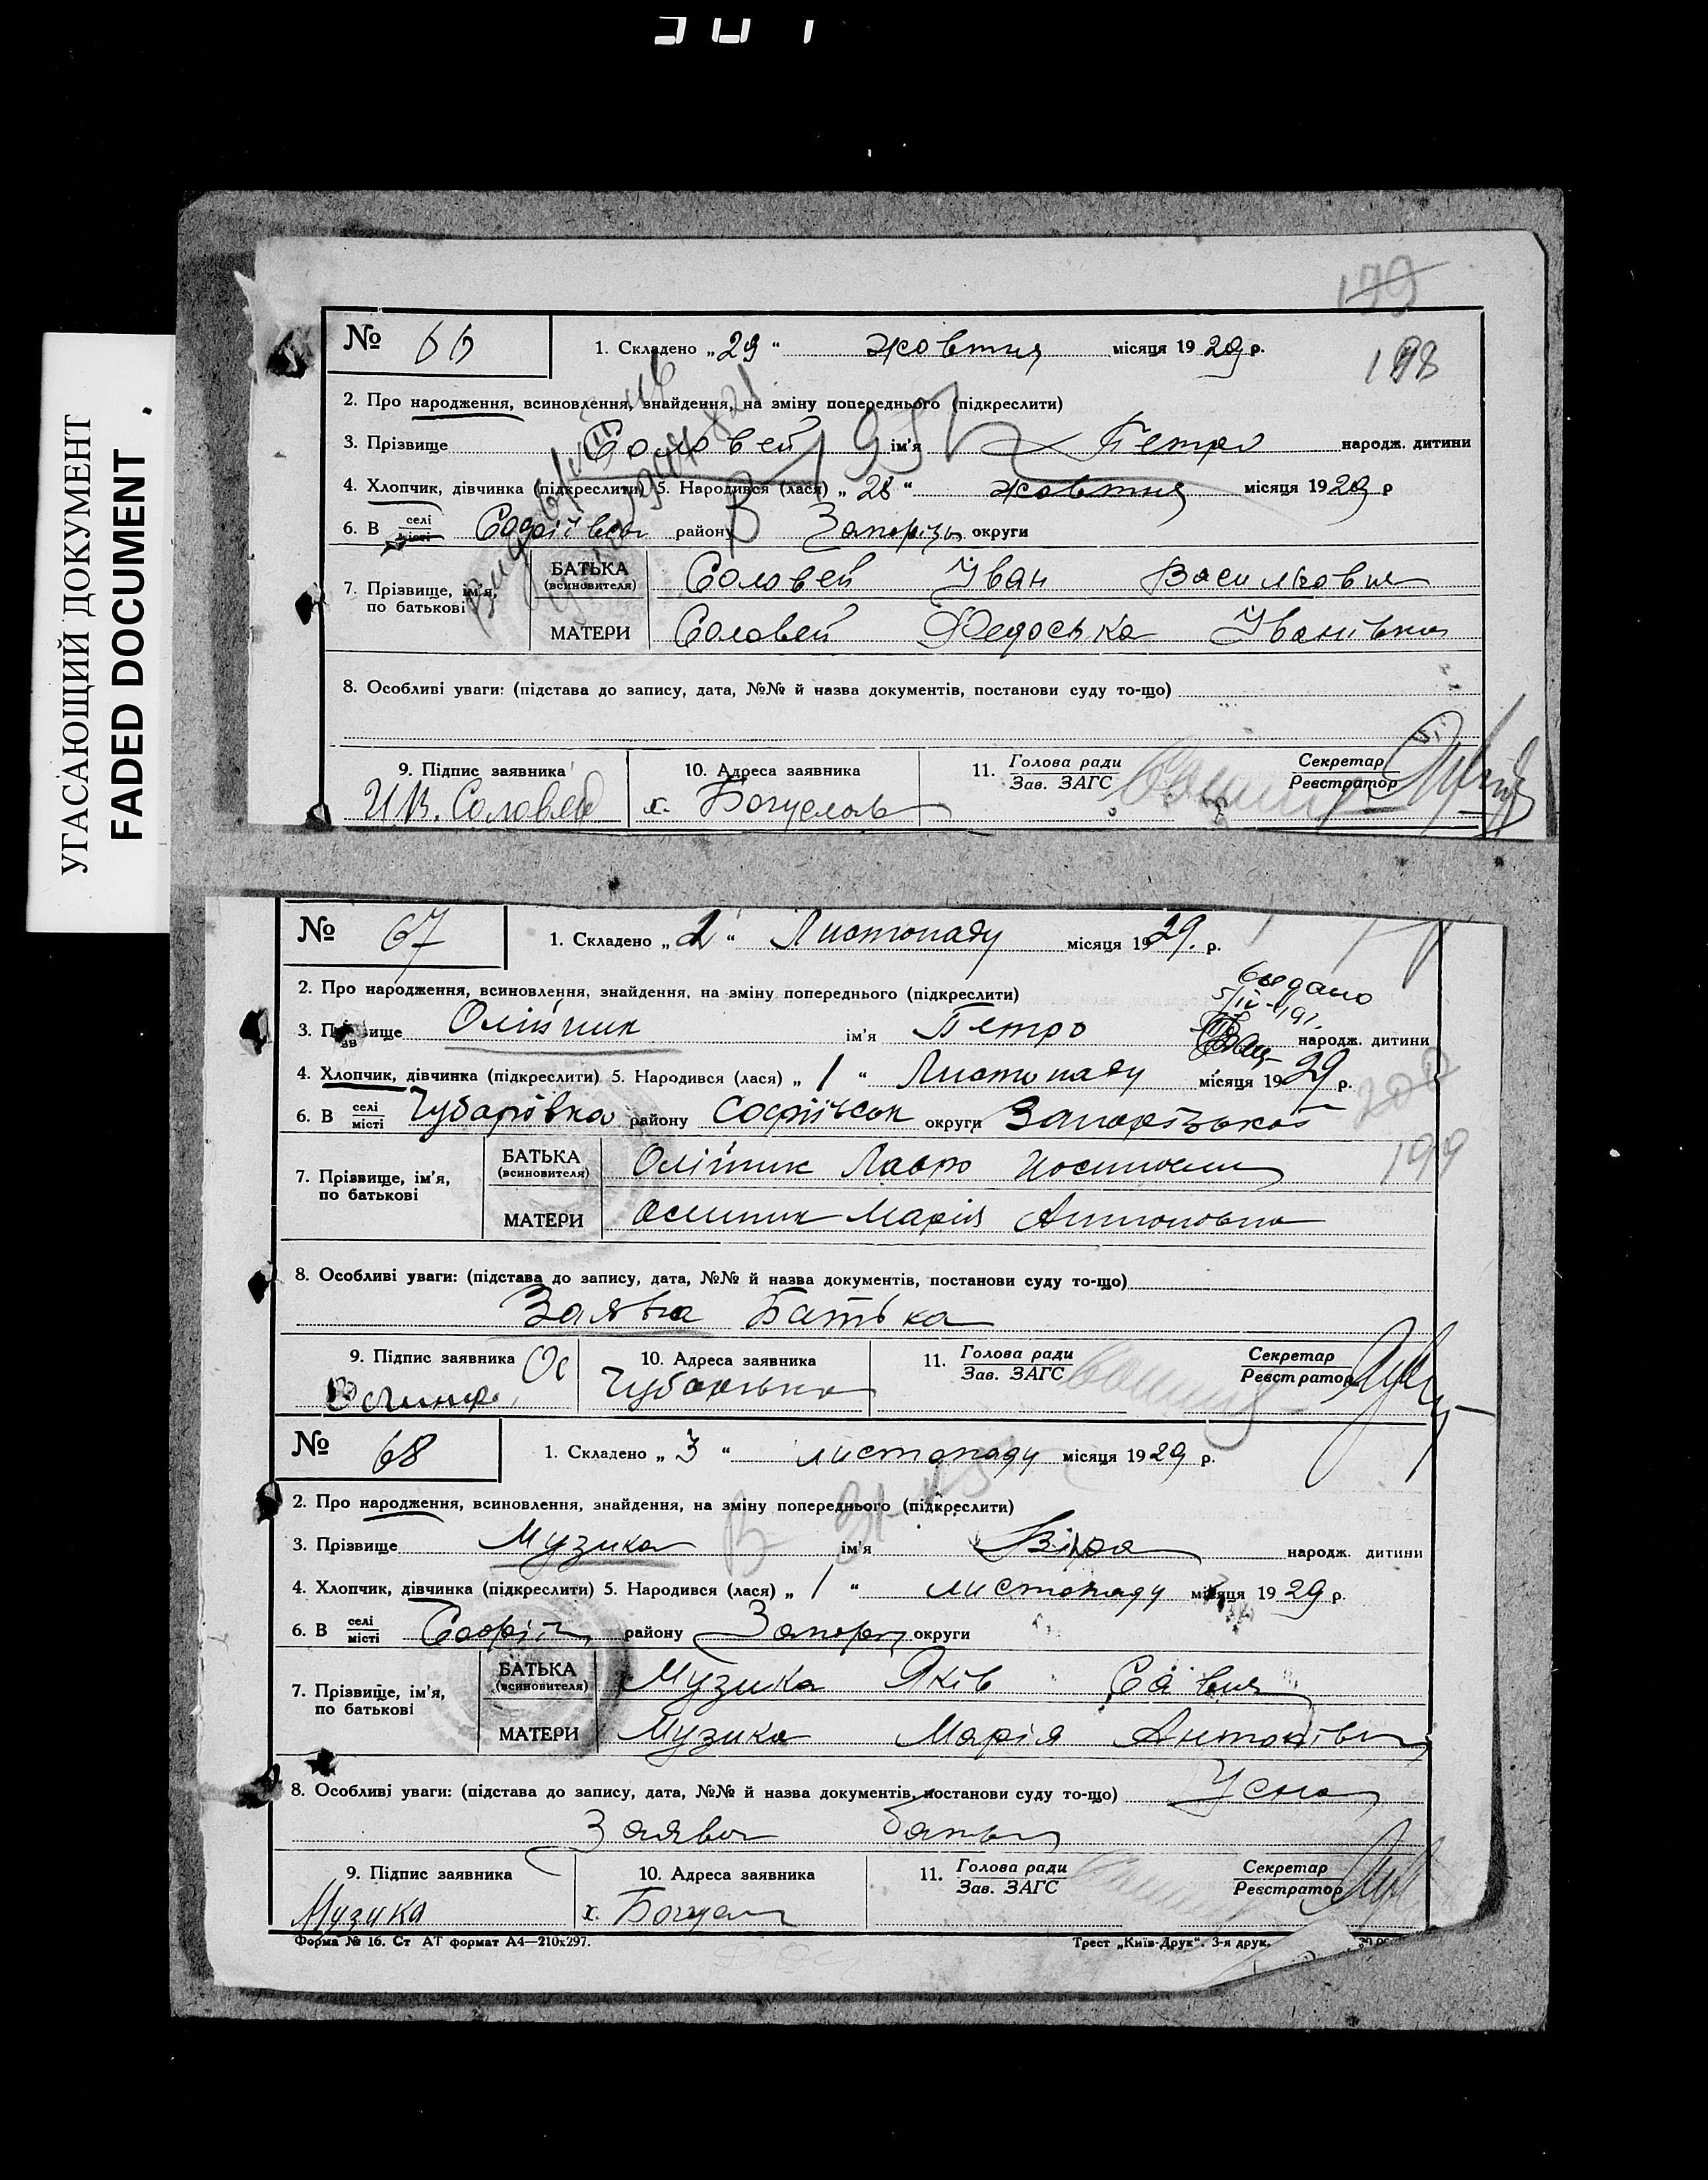 УГАСАЮЩИЙ ДОКУМЕНТ
FADED DOCUMENT
199
198
№ 66 1. Складено „29“ жовтня місяця 1929 р.
2. Про народження, всиновлення, знайдення, на зміну попереднього (підкреслити)
3. Прізвище Соловей ім'я Петро народж. дитини
4. Хлопчик, дівчинка (підкреслити) 5. Народився (лася) „28“ жовтня місяця 1929 р
6. В селі місті Софіївка району Запоріз. округи
7. Прізвище, ім'я, по батькові
БАТЬКА (всиновителя) Соловей Іван Васильович
МАТЕРИ Соловей Федоська Іванівна
8. Особливі уваги: (підстава до запису, дата, №№ й назва документів, постанови суду то-що)
9. Підпис заявника 10. Адреса заявника 11. Голова ради Зав. ЗАГС Секретар Реєстратор
И.В. Соловей х. Богуслав
№ 67 1. Складено „2“ Листопаду місяця 1929. р.
2. Про народження, всиновлення, знайдення, на зміну попереднього (підкреслити)
видано
3. Прізвище Олійник ім'я Петро народж. дитини
4. Хлопчик, дівчинка (підкреслити) 5. Народився (лася) „1“ Листопаду місяця 1929 р.
200
6. В селі місті Чубарівка району Софіївськ округи Запорізької
199
7. Прізвище, ім'я, по батькові
БАТЬКА (всиновителя) Олійник Лавро Йосипович
МАТЕРИ Олійник Марія Антоновна
8. Особливі уваги: (підстава до запису, дата, №№ й назва документів, постанови суду то-що)
Заява Батька
9. Підпис заявника 10. Адреса заявника 11. Голова ради Зав. ЗАГС Секретар Реєстратор
Чубарівка
№ 68 1. Складено „3“ листопаду місяця 1929 р.
2. Про народження, всиновлення, знайдення, на зміну попереднього (підкреслити)
3. Прізвище Музика ім'я Віра народж. дитини
4. Хлопчик, дівчинка (підкреслити) 5. Народився (лася) „1“ листопаду місяця 1929 р.
6. В селі місті Софіїв. району Запоріз. округи
7. Прізвище, ім'я, по батькові
БАТЬКА (всиновителя) Музика Яків
МАТЕРИ Музика Марія Антонівна
8. Особливі уваги: (підстава до запису, дата, №№ й назва документів, постанови суду то-що) Усна
Заява батька
9. Підпис заявника 10. Адреса заявника 11. Голова ради Зав. ЗАГС Секретар Реєстратор
Музика х. Богусл
Форма № 16. Ст АТ формат А4—210х297. Трест „Київ-Друк“. 3-я друк.